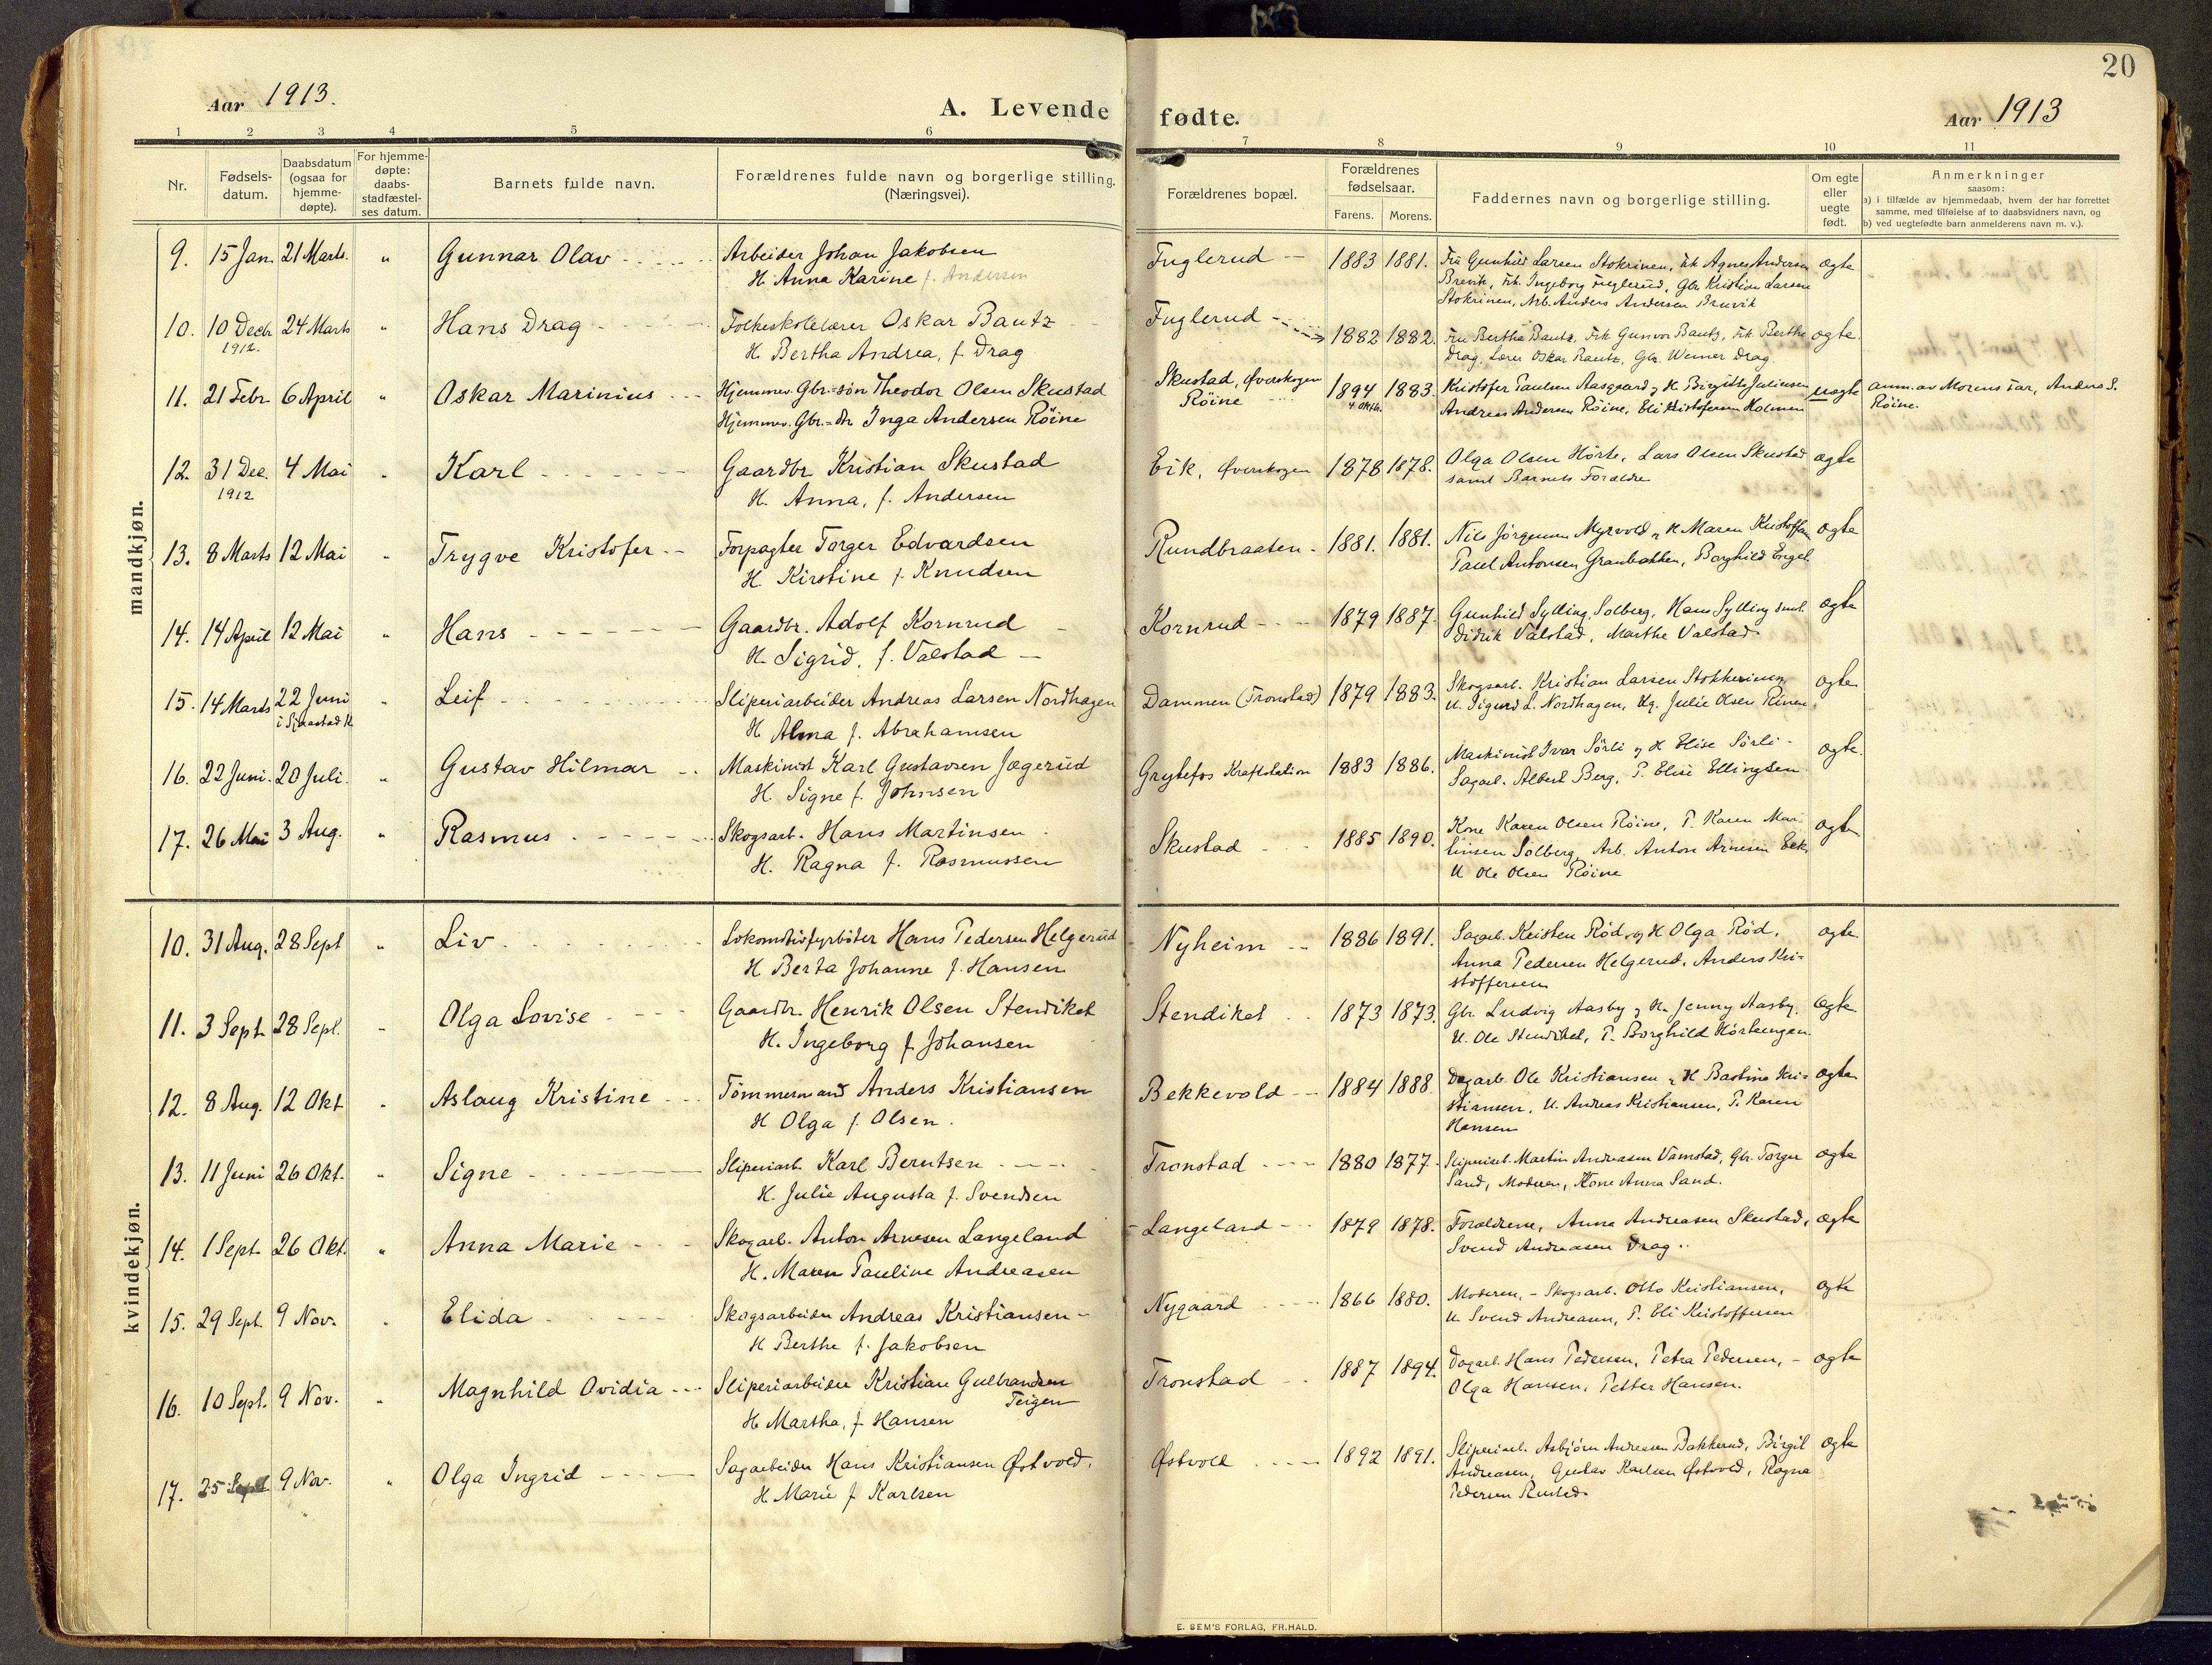 20
Aar 1913.
A. Levende fødte.
Aar 1913
1 2 3 4 5 6 7 8 9 10 11
Nr.
Fødsels-
datum.
Daabsdatum
(ogsaa for
hjemme-
døpte).
For hjemme-
døpte:
daabs-
stadfæstel-
ses datum.
Barnets fulde navn.
Forældrenes fulde navn og borgerlige stilling.
(Næringsvei).
Forældrenes bopæl.
Forældrenes
fødselsaar.
Farens. Morens.
Faddernes navn og borgerlige stilling.
Om egte
eller
uegte
født.
Anmerkninger
saasom:
a) i tilfælde av hjemmedaab, hvem der har forrettet
samme, med tilføielse af to daabsvidners navn, og
b) ved uegtefødte barn anmelderens navn m. v.).
mandkjøn.
9. 15 Jan. 21 Marts. " Gunnar Olav Arbeider Johan Jakobsen Fuglerud 1883 1881. Fru Gunhild Larsen Stokrinen, Frk Agnes Andersen ægte
H. Anna Karine f. Andersen Brevik, Frk. Ingeborg Fuglerud, Gbr Kristian Larsen
Stokrinen, Arb. Anders Andersen Bruvik
10. 10 Decbr 24 Marts " Hans Drag Folkeskolelærer Oskar Bautz Fuglerud 1882 1882. Fru Bertha Bautz, Frk Gunvor Bautz, Frk. Berthe ægte.
1912. H. Bertha Andrea, f. Drag Drag, Lærer Oskar Bautz, Gbr. Werner Drag.
11. 21 Febr 6 April " Oskar Marinius Hjemmev. Gbr.=søn Theodor Olsen Skustad Skustad, Øverskogen 1894 1883. Kristofer Paulsen Aasgaard og H. Birgitte Julinesen uægte anm. av Morens Far, Anders S.
Hjemmev. Gbr.=dtr Inga Andersen Røine Røine 4 Oktb. Andreas Andersen Røine, Eli Kristofersen Holmen Røine.
12. 31 Dec. 4 Mai " Karl Gaardbr. Kristian Skustad Eik, Øverskogen 1878 1878. Olga Olsen Hørte, Lars Olsen Skustad ægte
1912 H. Anna, f. Andersen samt Barnets Forældre
13. 8 Marts 12 Mai " Trygve Kristofer Forpagter Torger Edvardsen Rundbraaten 1881. 1881. Nils Jørgensen Myrvold, H. Maren Kristoffersen ægte
H. Kirstine f. Knudsen Paul Antonsen Granbakken, Borghild Engel.
14. 14 April 12 Mai " Hans Gaardbr. Adolf Kornrud Kornrud 1879 1887. Gunhild Sylling, Solberg, Hans Sylling smst. ægte
H. Sigrid, f. Valstad Didrik Valstad, Marthe Valstad
15. 14 Marts 22 Juni " Leif Sliperiarbeider Andreas Larsen Nordhagen Dammen (Tronstad) 1879 1883. Skogsarb. Kristian Larsen Stokkerinen ægte
i Sjaastad K H. Alma f. Abrahamsen U. Sigurd L. Nordhagen, Ug. Julie Olsen Rinen
16. 22 Juni. 20 Juli. " Gustav Hilmar Maskinist Karl Gustavsen Jægerud Grytefos Kraftstation 1883 1886. Maskinist Ivar Sørli og H. Elise Sørli ægte.
H. Signe f. Johnsen Sagarb. Albert Berg, P. Elise Ellingsen
17. 26 Mai 3 Aug. " Rasmus Skogsarb. Hans Martinsen Skustad 1885 1890. Kone Karen Olsen Røine, P. Karen Mar- ægte
H. Ragna f. Rasmussen tinsen Solberg, Arb. Anton Arnesen Eek,
U. Ole Olsen Røine
kvindekjøn.
10. 31 Aug. 28 Sept " Liv Lokomotivfyrbøter Hans Pedersen Helgerud Nyheim 1886 1891. Sagarb. Kristen Rød og H Olga Rød, ægte
H Berta Johanne f. Hansen Anna Pedersen Helgerud, Anders Kri-
stoffersen
11. 3 Sept. 28 Sept. " Olga Lovise Gaardbr. Henrik Olsen Stendiket Stendiket 1873 1873. Gbr Ludvig Aasby, H. Jenny Aasby, ægte.
H. Ingeborg f Johansen U. Ole Stendiket, P. Borghild Hørtengen
12. 8 Aug. 12 Okt " Aslaug Kristine Tømmermand Anders Kristiansen Bekkevold 1884 1888 Dagarb. Ole Kristiansen, H Bastine Kri- ægte
H Olga f. Olsen. stiansen, U. Andreas Kristiansen, P. Karen
Hansen
13. 11 Juni 26 Okt. " Signe Sliperiarb. Karl Berntsen Tronstad 1880 1877. Sliperiarb. Martin Andreasen Vamstad, Gbr. Torger ægte
H. Julie Augusta f. Svendsen Sand, Moderen, Kone Anna Sand.
14. 1 Sept 26 Okt. " Anna Marie Skogarb. Anton Arnesen Langeland Langeland 1879 1878. Forældrene, Anna Andreasen Skustad, ægte
H. Maren Pauline Andreasen Svend Andreasen Drag.
15. 29 Sept. 9 Nov. " Elida Skogsarbeider Andreas Kristiansen Nygaard 1866 1880. Moderen, Skogsarb. Otto Kristiansen, ægte
H Berthe f. Jakobsen U. Svend Andreasen, P. Eli Kristoffersen
16. 10 Sept. 9 Nov. " Magnhild Ovidia Sliperiarbeider Kristian Gulbrandsen Tronstad 1887 1894. Dagarb. Hans Pedersen, Petra Pedersen, ægte
Teigen
H. Martha, f. Hansen Olga Hansen, Petter Hansen.
17. 25 Sept 9 Nov. " Olga Ingrid Sagarbeider Hans Kristiansen Østvold. Østvold 1892 1891. Sliperiarb. Asbjørn Andreasen Bakkerud, Birgit ægte
H. Marie f Karlsen Andreasen, Gustav Karlsen Østvold, Ragna
Pedersen Rustad.
E. SEM'S FORLAG, FR.HALD.